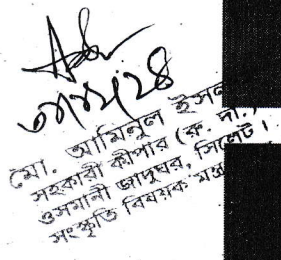 মো. আমিনুল ইসল
সহকারী কীপার (রু. দা.)
ওসমানী জাদুঘর, সিলেট।
সংস্কৃতি বিষয়ক মন্ত্র